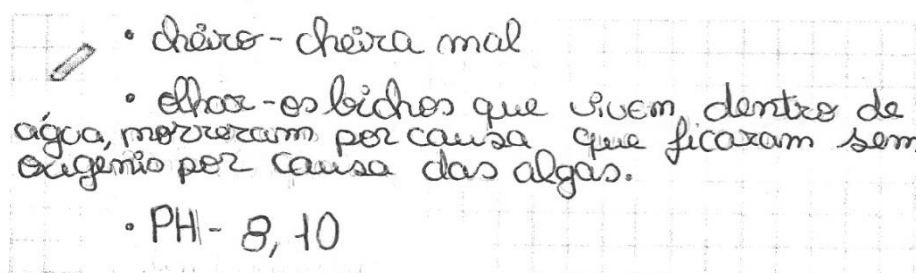 • cheiro - cheira mal
• olhar - os bichos que vivem dentro de
água, morreram por causa que ficaram sem
oxigenio por causa das algas.
• PH - 8,10